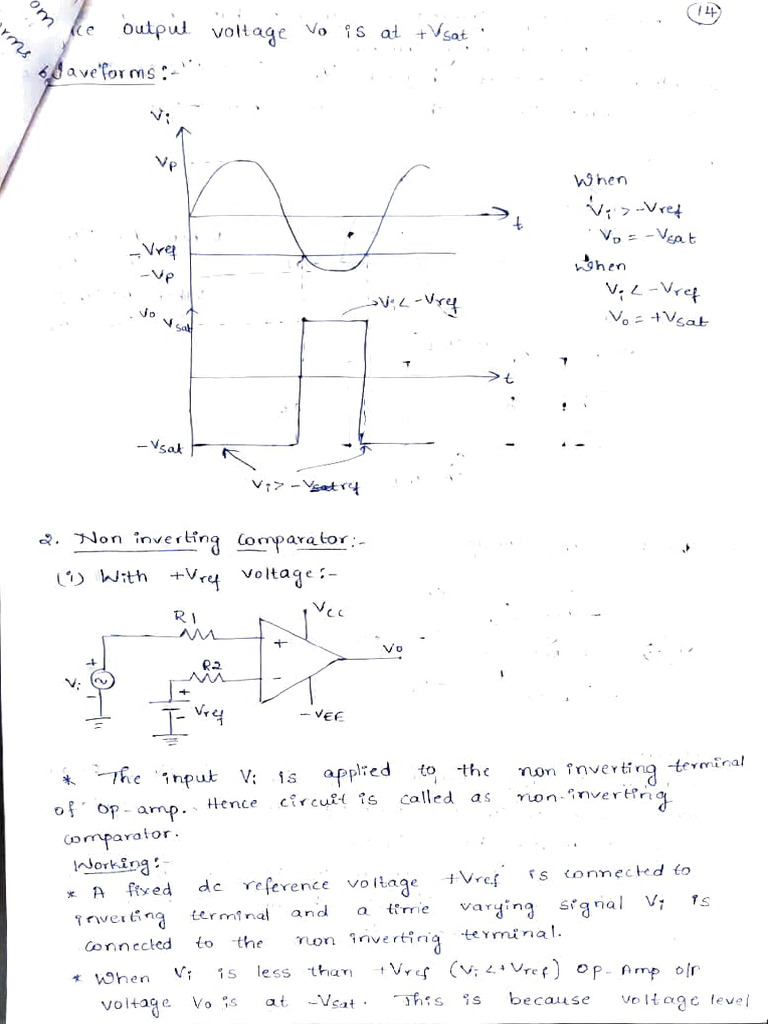 (14)
output voltage Vo is at +Vsat.
Waveforms:-
Vi
Vp
t
-Vref
-Vp
When
Vi > -Vref
Vo = -Vsat
When
Vi < -Vref
Vo = +Vsat
Vo
Vsat
Vi < -Vref
t
-Vsat
Vi > -Vref
2. Non inverting Comparator:-
(i) With +Vref voltage:-
R1
VCC
+
Vo
R2
-
+
Vi
-
+
-
Vref
-VEE
* The input Vi is applied to the non inverting terminal
of op-amp. Hence circuit is called as non-inverting
comparator.
Working:-
* A fixed dc reference voltage +Vref is connected to
inverting terminal and a time varying signal Vi is
connected to the non inverting terminal.
* When Vi is less than +Vref (Vi < +Vref) Op-Amp o/p
voltage Vo is at -Vsat. This is because voltage level